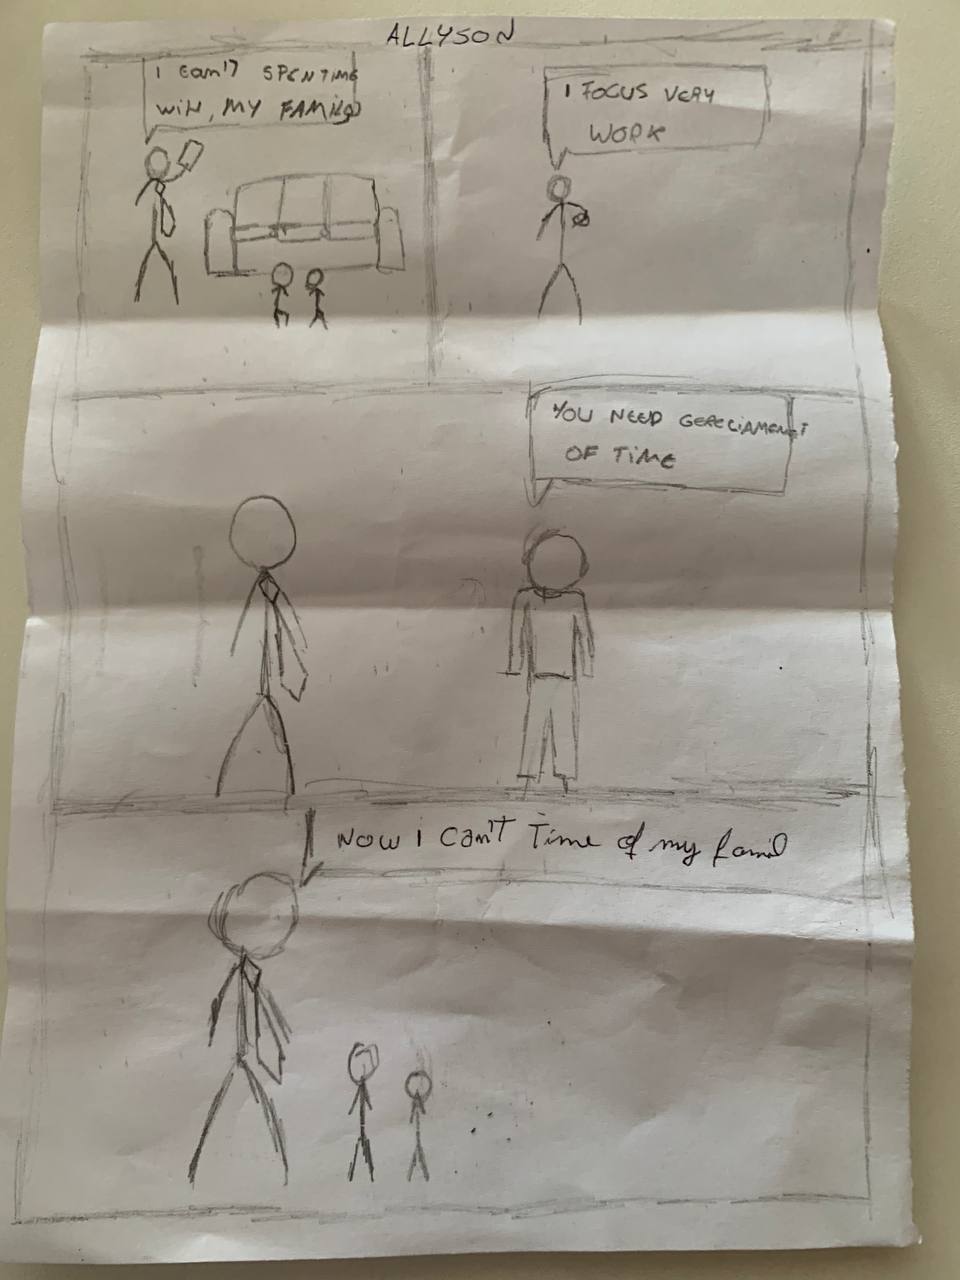 ALLYSON
I Can't SPENTIME
WIH, MY FAMILY
I FOCUS VERY
WORK
YOU NEED GERECIAMENT
OF TIME
NOW I CAN'T Time of my famil